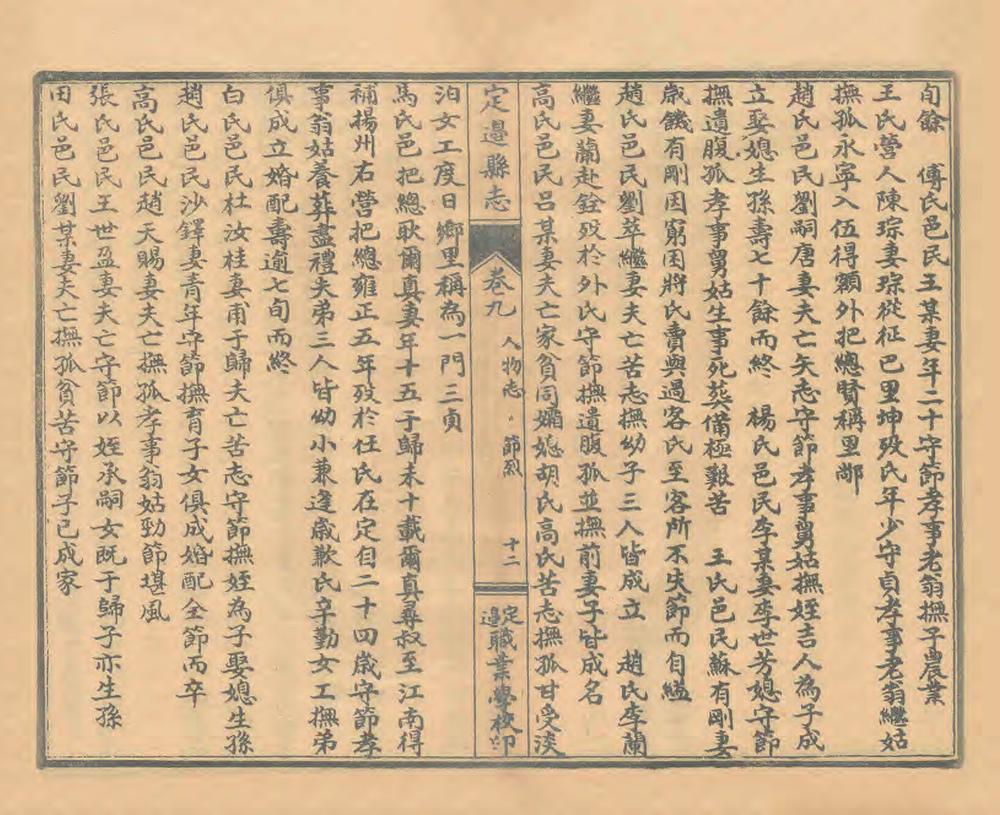 旬餘　傅氏邑民王某妻年二十守節孝事老翁撫子農業
王氏營人陳琮妻琮從征巴里坤歿氏年少守貞孝事老翁繼姑
撫孤永寧入伍得額外把總賢稱里鄰
趙氏邑民劉嗣唐妻夫亡矢志守節孝事舅姑撫姪吉人為子成
立娶媳生孫壽七十餘而終　楊氏邑民李某妻李世芳媳守節
撫遺腹孤孝事舅姑生事死葬備極艱苦　王氏邑民蘇有剛妻
歲饑有剛因窮困將氏賣與過客氏至客所不失節而自縊
趙氏邑民劉萃繼妻夫亡苦志撫幼子三人皆成立　趙氏李蘭
繼妻蘭赴銓歿於外氏守節撫遺腹孤並撫前妻子皆成名
高氏邑民呂某妻夫亡家貧同孀媳胡氏高氏苦志撫孤甘受淡
定邊縣志
卷九
人物志．節烈
十二
定邊職業學校印
泊女工度日鄉里稱為一門三貞
馬氏邑把總耿爾真妻年十五于歸未十載爾真尋叔至江南得
補揚州右營把總雍正五年歿於任氏在定自二十四歲守節孝
事翁姑養葬盡禮夫弟三人皆幼小兼逢歲歉氏辛勤女工撫弟
俱成立婚配壽逾七旬而終
白氏邑民杜汝桂妻甫于歸夫亡苦志守節撫姪為子娶媳生孫
趙氏邑民沙鐸妻青年守節撫育子女俱成婚配全節而卒
高氏邑民趙天賜妻夫亡撫孤孝事翁姑勁節堪風
張氏邑民王世盈妻夫亡守節以姪承嗣女既于歸子亦生孫
田氏邑民劉某妻夫亡撫孤貧苦守節子已成家